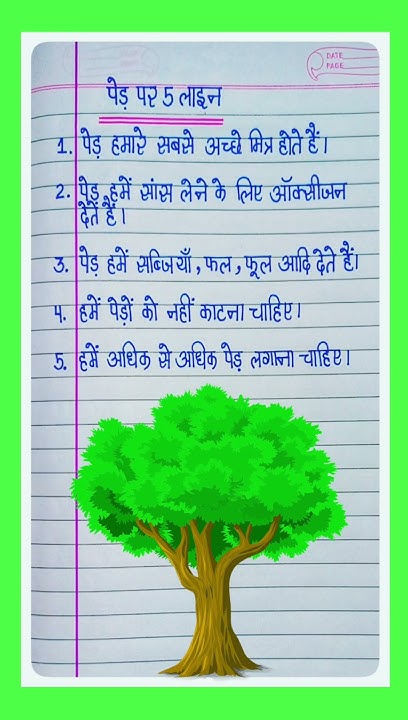 DATE
PAGE
पेड़ पर 5 लाइन
1. पेड़ हमारे सबसे अच्छे मित्र होते हैं।
2. पेड़ हमें सांस लेने के लिए ऑक्सीजन
देतें हैं।
3. पेड़ हमें सब्जियाँ, फल, फूल आदि देते हैं।
4. हमें पेड़ों को नहीं काटना चाहिए।
5. हमें अधिक से अधिक पेड़ लगाना चाहिए।